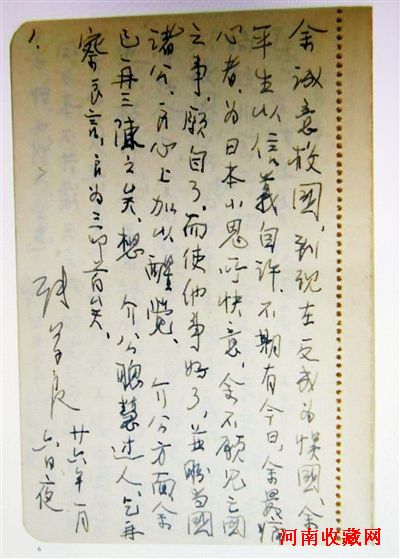 余诚意救國,到现在反成为悮國,余
平生以信義自许,不期有今日,余最痛
心者,为日本小鬼所快意,余不願见亡國
之事,願自了,而使他事好了,並盼当國
诸公,良心上加以醒觉。介公方面余
已再三陳之矣,想 介公聰慧过人,乞再
察良言,良为三叩首矣,
张学良
廿六年一月
六日夜
6
河南收藏网